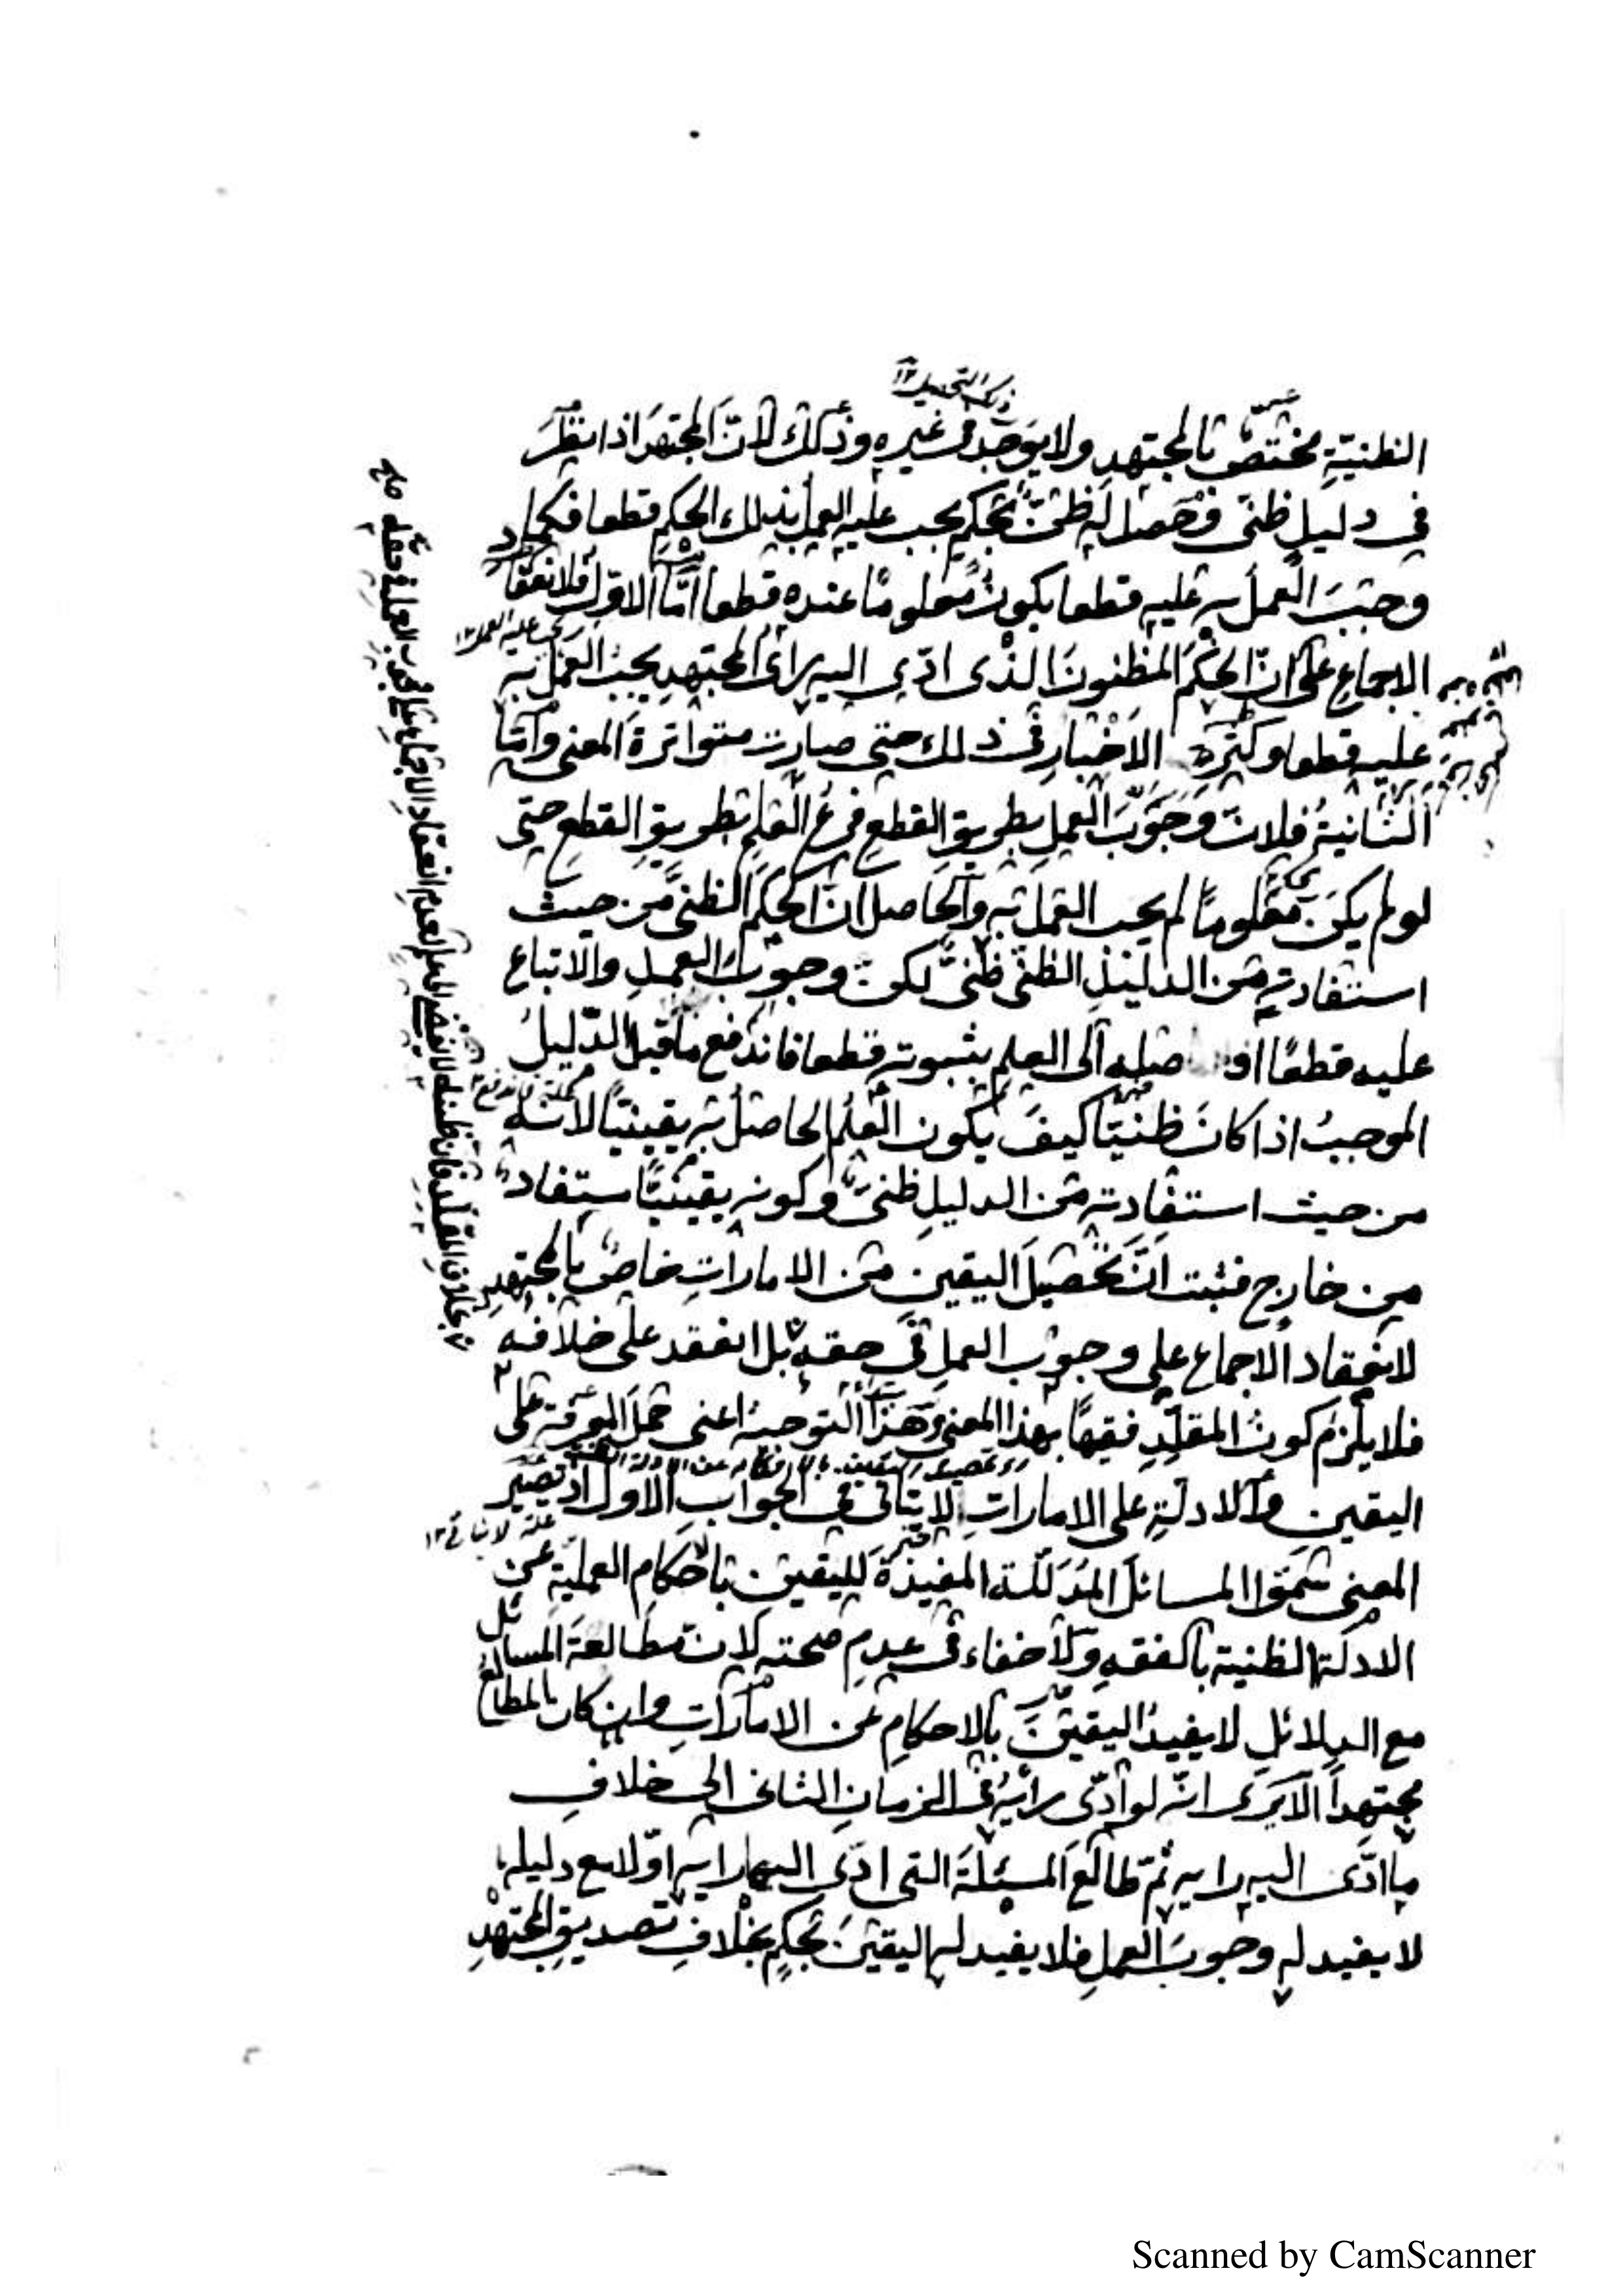 ذلك التحصيل ١٢
الظنية مختص بالمجتهد ولا يوجد في غيره وذلك لأن المجتهد اذا نظر
في دليل ظني فحصل له ظن بحكم يجب عليه العمل بذلك الحكم قطعا فكلما
وجب العمل به عليه قطعا يكون معلوما عنده قطعا أما الاول فلانعقاد
الاجماع على ان الحكم المظنون الذي ادى اليه رأى المجتهد يجب العمل به
عليه قطعا وكثرة الاخبار في ذلك حتى صارت متواترة المعنى وأما
الثانية فلان وجوب العمل بطريق القطع فرع العلم بطريق القطع حتى
لو لم يكن معلوما لم يجب العمل به والحاصل ان الحكم الظني من حيث
استفادته من الدليل الظني ظني لكن وجوب العمل والاتباع
عليه قطعا صله الى العلم بثبوته قطعا فاندفع ما قيل الدليل
الموجب اذا كان ظنيا كيف يكون العلم الحاصل به يقينيا لانه
من حيث استفادته من الدليل ظني وكونه يقينيا مستفاد
من خارج فثبت ان تحصيل اليقين من الامارات خاص بالمجتهد
لانعقاد الاجماع على وجوب العمل في حقه بل انعقد على خلافه
فلا يلزم كون المقلد فقيها بهذا المعنى وهذا التوجيه اعني حمل المعرفة على
اليقين والادلة على الامارات لا يتاتى في الجواب الاول اذ تصير
علة لا يتاتى ١٢
المعنى سموا المسائل المدللة المفيدة لليقين بالاحكام العملية عن
الادلة الظنية بالفقه ولا خفاء في عدم صحته لان مطالعة المسائل
مع الدلائل لا يفيد اليقين بالاحكام عن الامارات وان كان المطالع
مجتهدا الا يرى انه لو أدى رايه في الزمان الثاني الى خلاف
ما ادى اليه رايه ثم طالع المسئلة التي ادى اليها رايه اولا مع دليله
لا يفيد له وجوب العمل فلا يفيد له اليقين بحكم بخلاف تصديق المجتهد
بخلاف المقلد فان ظنه لا يفضي الى علم لعدم انعقاد الاجماع على وجوب العمل في حقه
Scanned by CamScanner